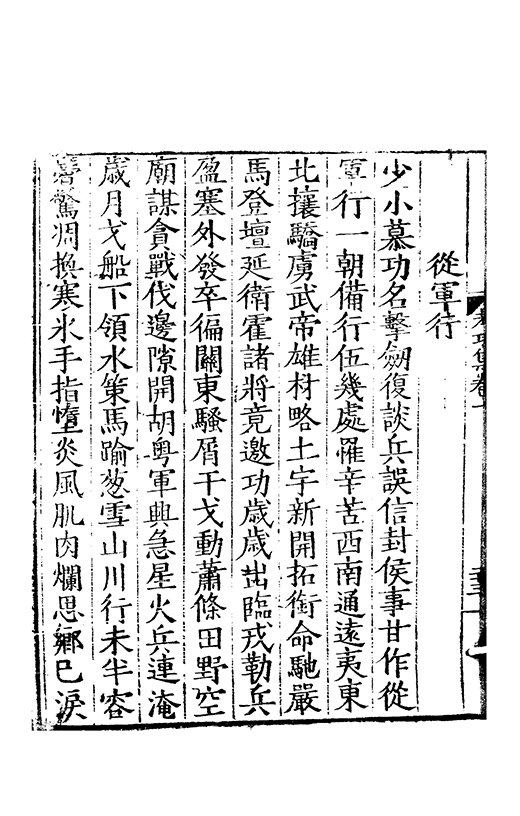 從軍行
少小慕功名擊劒復談兵誤信封侯事甘作從
軍行一朝備行伍幾處罹辛苦西南通遠夷東
北攘驕虜武帝雄材略土宇新開拓銜命馳嚴
馬登壇延衛霍諸將竟邀功歲歲出臨戎勒兵
盈塞外發卒徧關東騷屑干戈動蕭條田野空
廟謀貪戰伐邊隙開胡粤軍興急星火兵連淹
歲月戈船下領水策馬踰葱雪山川行未半容
鬢驚凋換寒氷手指墮炎風肌肉爛思鄉已淚
集卷